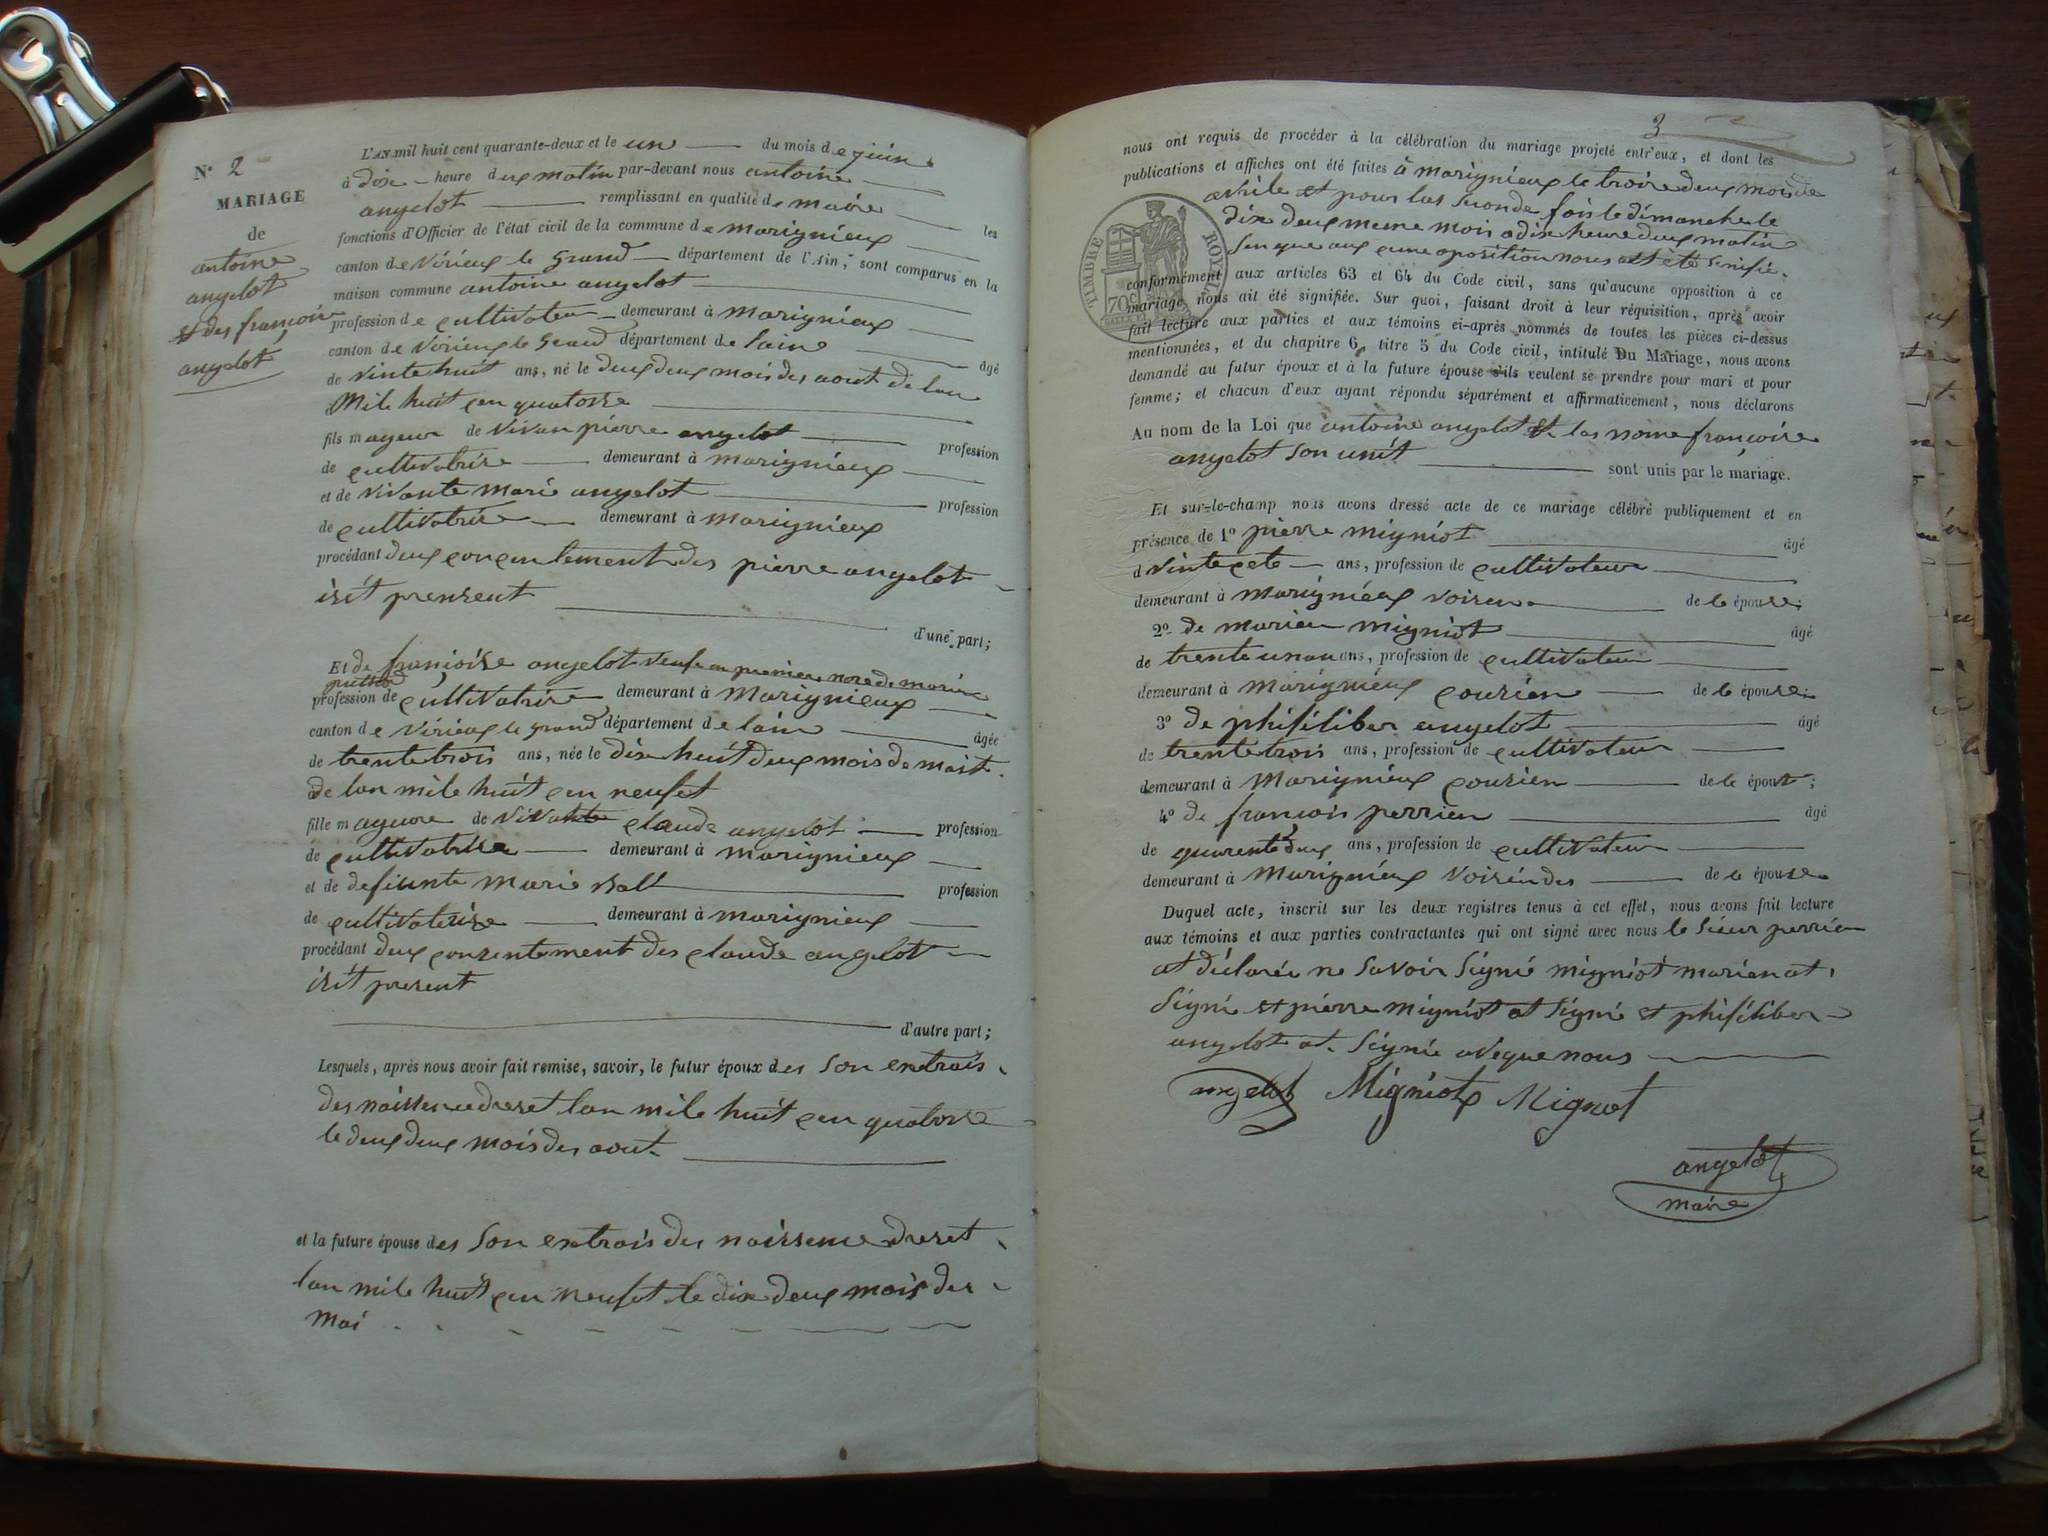 N° 2
MARIAGE
de
antoine
angelot
et des françoise
angelot
L'AN mil huit cent quarante-deux et le un du mois de juin
à dix heure deux matin par-devant nous antoine
angelot remplissant en qualité de maire les
fonctions d'Officier de l'état civil de la commune de marignieux
canton de virieux le grand département de l'Ain, sont comparus en la
maison commune antoine angelot
profession de cultivateur demeurant à marignieux
canton de virieux le grand département de lain âgé
de vinte huit ans, né le deux deux mois des aout de lan
Mile huit cen quatorse
fils mageur de vivan pierre angelot profession
de cultivatrise demeurant à marignieux
et de vivante marie angelot profession
de cultivatrise demeurant à marignieux
procédant deux conçentement des pierre angelot
isit prensent
d'une part;
Et de françoise angelot veufe en premier nose de marin
profession de cultivatrise demeurant à Marignieux
canton de virieux le grand département de lain âgée
de trente trois ans, née le dix huit deux mois de mait
de lan mile huit cen neufet
fille mageure de vivante claude angelot profession
de cultivatrise demeurant à marignieux
et de defiunte marie ball profession
de cultivatrise demeurant à marignieux
procédant deux consentement des claude angelot
isit present
d'autre part;
Lesquels, après nous avoir fait remise, savoir, le futur époux des son extrais
des naissence dreset lan mile huit cen quatorse
le deux deux mois des aout
et la future épouse des son extrais des naissense dreset
lan mile huit cen neufet le dix deux mois des
mai
3
nous ont requis de procéder à la célébration du mariage projeté entr'eux, et dont les
publications et affiches ont été faites à marignieux le troise deux mois de
avrile et pour las seconde fois le dimanche le
dix deux meme mois a dix heure deux matin
san que aux cune oposition nous ait eté sinifié.
TIMBRE ROYAL
70 c
conformément aux articles 63 et 64 du Code civil, sans qu'aucune opposition à ce
mariage nous ait été signifiée. Sur quoi, faisant droit à leur réquisition, après avoir
fait lecture aux parties et aux témoins ci-après nommés de toutes les pièces ci-dessus
mentionnées, et du chapitre 6, titre 5 du Code civil, intitulé Du Mariage, nous avons
demandé au futur époux et à la future épouse s'ils veulent se prendre pour mari et pour
femme; et chacun d'eux ayant répondu séparément et affirmativement, nous déclarons
Au nom de la Loi que antoine angelot et las nome françoise
angelot son unit sont unis par le mariage.
Et sur-le-champ nous avons dressé acte de ce mariage célébré publiquement et en
présence de 1° pierre migniot âgé
d vinte cete ans, profession de cultivateur
demeurant à marignieux voisen de le épouse;
2° de marien migniot âgé
de trente unan ans, profession de cultivateur
demeurant à marignieux cousien de le épouse
3° de phisiliber angelot âgé
de trente trois ans, profession de cultivateur
demeurant à Marignieux cousien de le épous;
4° de françois perrien âgé
de quarente deux ans, profession de cultivateur
demeurant à Marignieux voisin des de le épouse
Duquel acte, inscrit sur les deux registres tenus à cet effet, nous avons fait lecture
aux témoins et aux parties contractantes qui ont signé avec nous le sieur perrien
at déclarée ne savoir signié migniot marien at
signié et pierre migniot at signié et phisiliber
angelot at signié aveque nous
angelot Migniot Mignot
angelot
maire